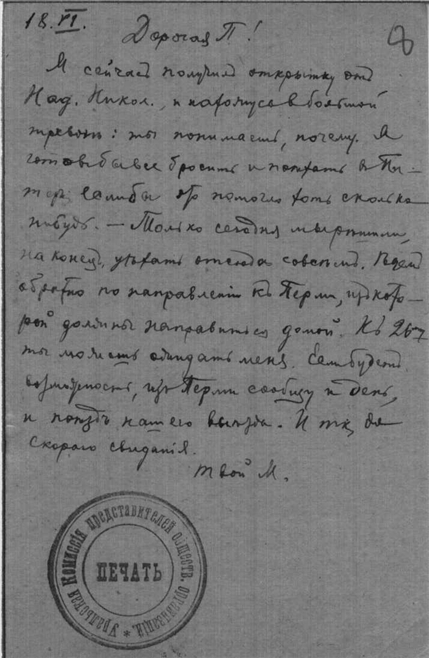 18.VI.
8
Дорогая П!
Я сейчасъ получилъ открытку отъ
Над. Никол., и нахожусь в большой
тревоге: ты понимаешь, почему. Я
готовъ бы все бросить и поехать в Пи-
теръ, если бы это помогло хоть сколько
нибудь. — Только сегодня мы решили,
наконецъ, уехать отсюда совсемъ. Едемъ
обратно по направленію къ Перми, изъ кото-
рой должны направиться домой. Къ 26-7
ты можешь ожидать меня. Если будетъ
возможность, изъ Перми сообщу и день,
и поездъ нашего выезда. И такъ, до
скораго свиданія.
Твой М.
Уральская Комиссія представителей обществ. организацій.
ПЕЧАТЬ